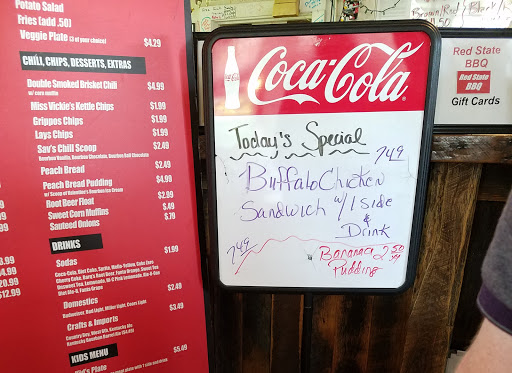 Potato Salad
Fries (add .50)
Veggie Plate (3 of your choice) $4.29
CHILI, CHIPS, DESSERTS, EXTRAS
Double Smoked Brisket Chili $4.99
w/ corn muffin
Miss Vickie's Kettle Chips $1.99
Grippos Chips $1.99
Lays Chips $1.99
Sav's Chili Scoop $2.49
Bourbon Vanilla, Bourbon Chocolate, Bourbon Ball Chocolate
Peach Bread $2.49
Peach Bread Pudding $4.99
w/ Scoop of Valentine's Bourbon Ice Cream
Root Beer Float $2.99
Sweet Corn Muffins $.49
Sauteed Onions $.79
DRINKS
Sodas $1.99
Domestics $2.49
Budweiser, Bud Light, Miller Light, Coors Light
Crafts & Imports $3.49
KIDS MENU
$5.49
$12.99
Coca-Cola
Today's Special
7.49
Buffalo Chicken
Sandwich w/ 1 side
&
Drink
7.49
Banana 2.50
Pudding
Red State
BBQ
Red State
BBQ
Gift Cards